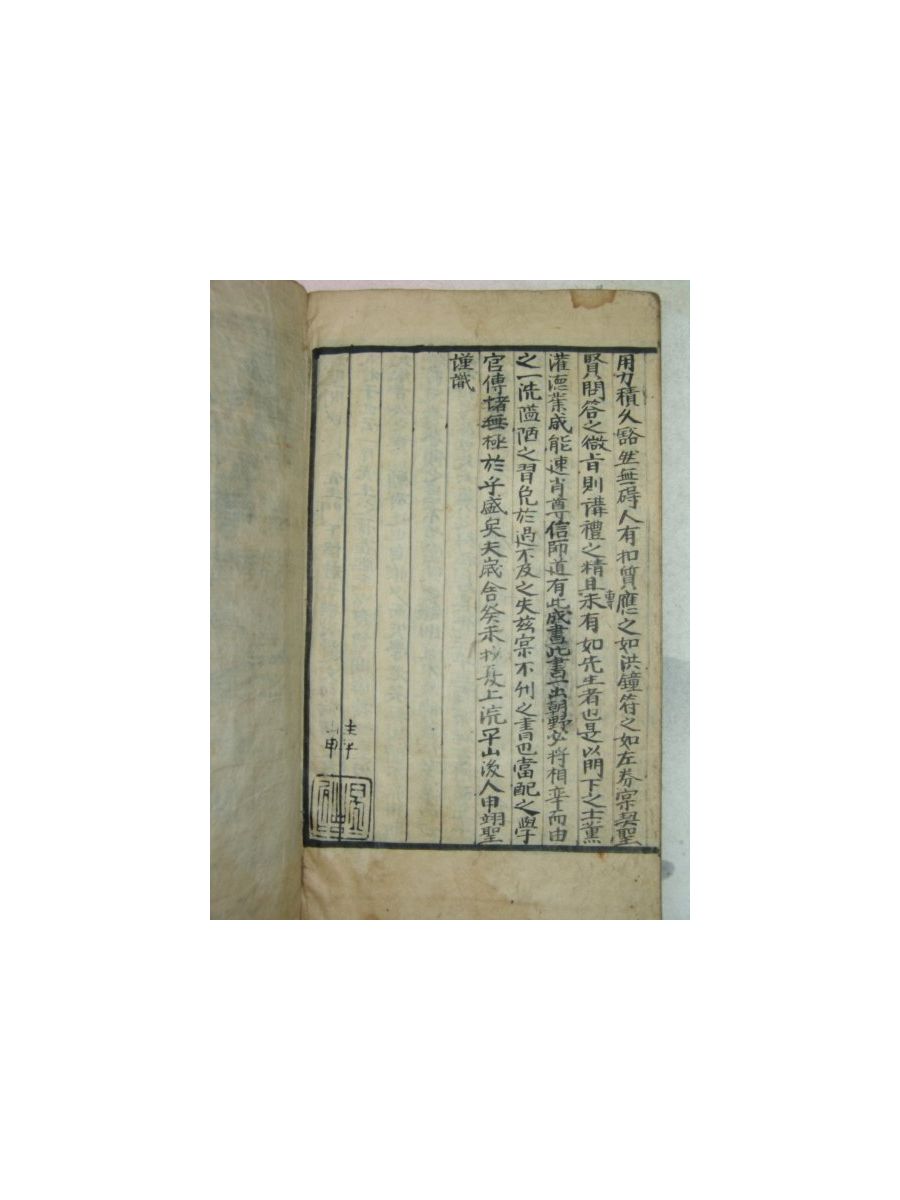 用力積久豁然無碍人有扣質應之如洪鐘符之如左券宲契聖
賢問答之微旨則講禮之精且專未有如先生者也是以門下之士薫
灌德業成能速肖尊信師道有此成書此書一出朝野必將相率而由
之一洗隘陋之習免於過不及之失玆宲不刊之書也當配之學
官傳諸無極於乎盛矣夫歲舍癸未抄夏上浣平山後人申翊聖
謹識